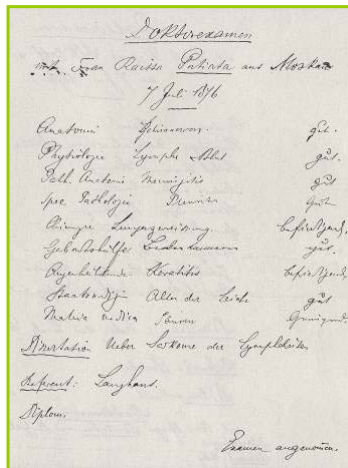 Doktorexamen
mit Frau Raissa Putiata aus Moskau
7 Juli 1876
Anatomie gut.
Physiologie Lymphe Blut gut.
Path. Anatomie Meningitis gut
spec. Pathologie Pleuritis gut
Chirurgie befriedigend.
Geburtshülfe gut.
Augenheilkunde Keratitis befriedigend.
Staatsmedizin Alter der Leiche gut
Materia medica Genügend.
Dissertation Ueber Sarkome der Lymphdrüsen
Referent: Langhans.
Diplom.
Examen angenommen.